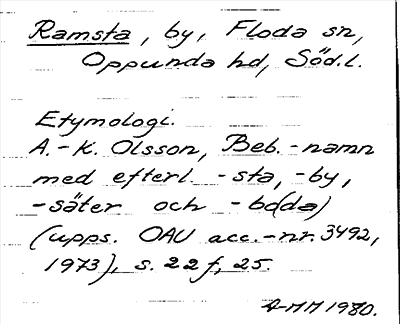 Ramsta, by, Floda sn,
Oppunda hd, Söd.l.
Etymologi.
A.-K. Olsson, Beb.-namn
med efterl. -sta, -by,
-säter och -bo(da)
(upps. OAU acc.-nr. 3492,
1973), s. 22f, 25.
A-MM 1980.